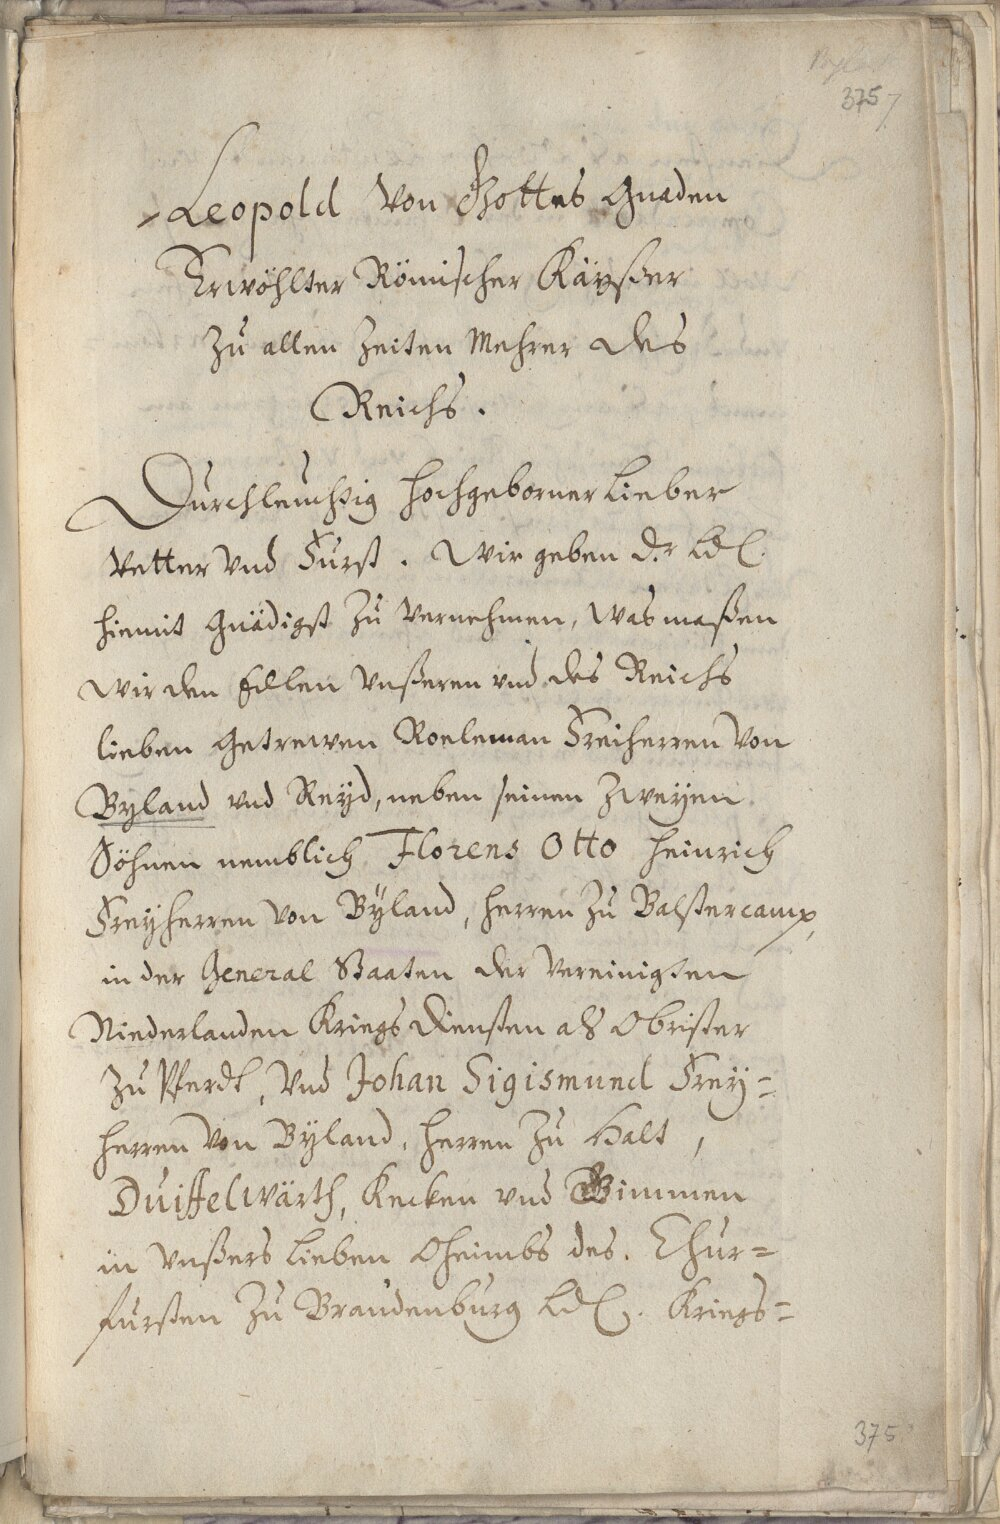 375
Leopold Von Gottes Gnaden
Erwöhlter Römischer Käyßer
Zu allen Zeiten Mehrer des
Reichs.
Durchleuchtig hochgeborner Lieber
Vetter Vnd Fürst. Wir geben D.r Ld.
hiemit Gnädigst Zu Vernehmen, Was maßen
Wir den Edlen Vnßeren vnd des Reichs
lieben Getrewen Roeleman Freiherren Von
Byland vnd Reyd, neben seinen Zweyen
Söhnen nemblich Florens Otto Heinrich
Freyherren Von Byland, Herren Zu Balstercamp,
in der General Staaten der Vereinigten
Niederlanden Kriegs Diensten als Obrister
Zu Pferdt, Vnd Johan Sigismund Frey=
herren Von Byland, Herren Zu Halt,
Duiffelwärth, Kecken vnd Bimmen
in Vnßers Lieben Oheimbs des. Chur=
fürsten Zu Brandenburg Ld. Kriegs=
375